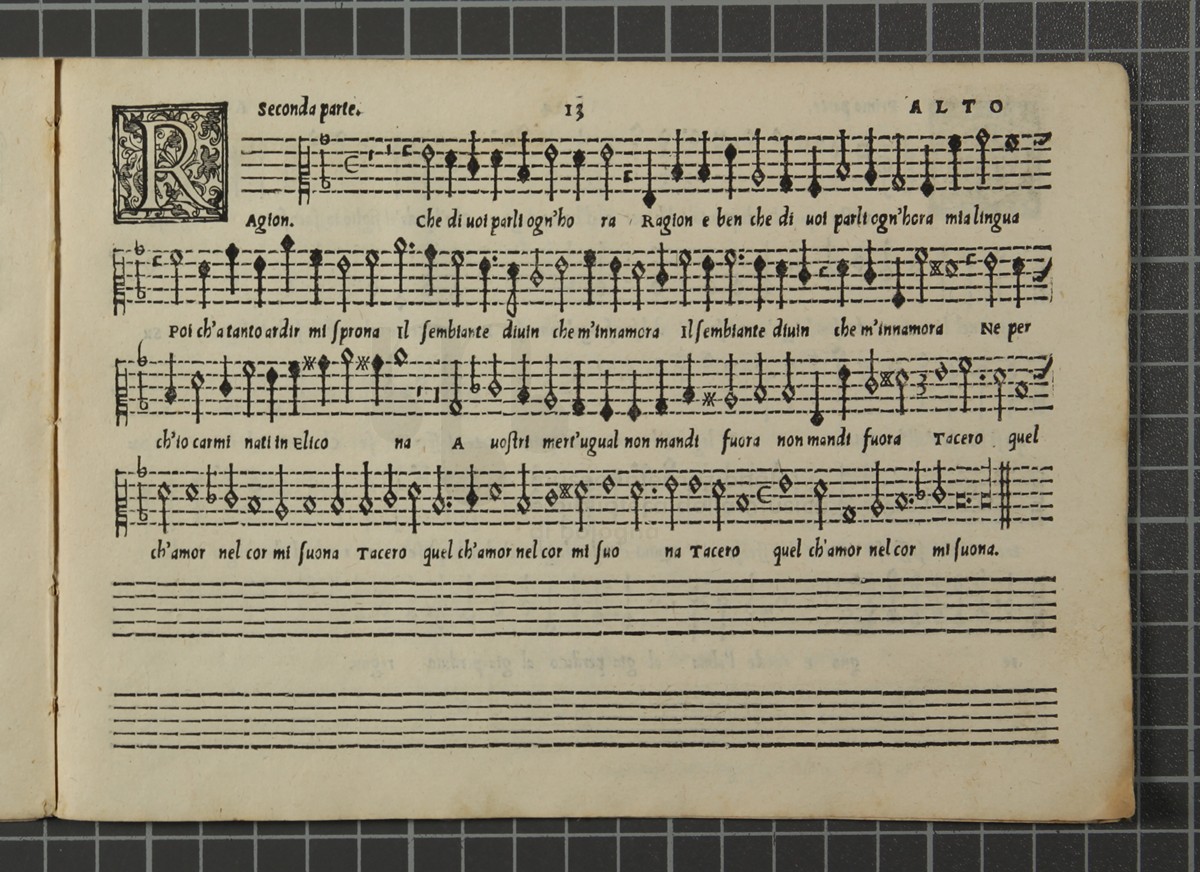 Seconda parte. 13 ALTO
RAgion. Che di uoi parli ogn'ho ra Ragion e ben che di uoi parli ogn'hora mia lingua
Poi ch'a tanto ardir mi sprona Il sembiante diuin che m'innamora Il sembiante diuin che m'innamora Ne per
ch'io carmi nati in Elico na A uostri mert'ugual non mandi fuora non mandi fuora Tacero quel
ch'amor nel cor mi suona Tacero quel ch'amor nel cor mi suo na Tacero quel ch'amor nel cor mi suona.